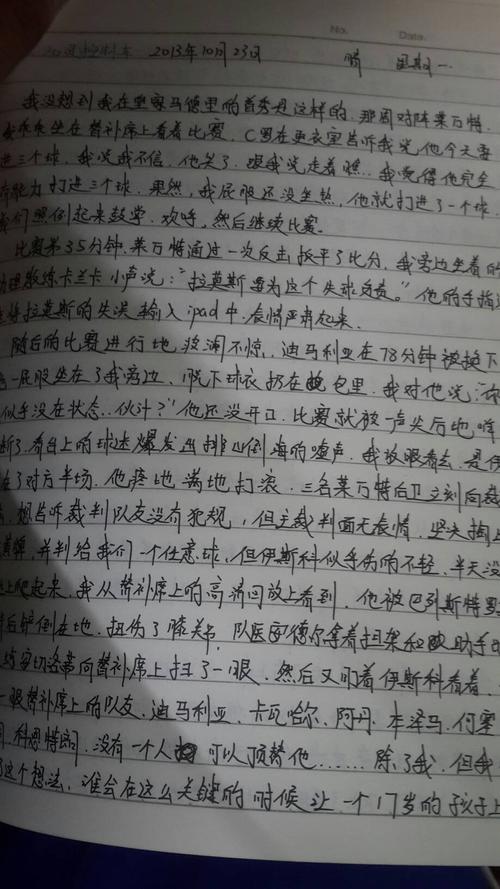 No.
Date.
2013年10月23日 晴 星期一
我没想到我在皇家马德里的首秀是这样的.那周对阵莱万特.
我乖乖坐在替补席上看着比赛.C罗在更衣室告诉我说他今天要
进三个球.我说我不信.他笑了.跟我说走着瞧...我觉得他完全
有能力打进三个球.果然,我屁股还没坐热,他就打进了一个球.
我们照例起来鼓掌.欢呼,然后继续比赛.
比赛第35分钟.莱万特通过一次反击扳平了比分.我旁边坐着的
助理教练卡兰卡小声说:“拉莫斯要为这个失球负责.”他的手指
将拉莫斯的失误输入ipad中.表情严肃起来.
随后的比赛进行地波澜不惊.迪马利亚在78分钟被换下
一屁股坐在了我旁边.脱下球衣扔在包里.我对他说:“你
似乎没在状态..伙计?”他还没开口.比赛就被一声尖厉地哨
断了.看台上的球迷爆发出排山倒海的嘘声.我放眼看去.是伊
在了对方半场.他疼地满地打滚.三名莱万特后卫立刻向裁
想告诉裁判队友没有犯规,但主裁判面无表情.坚决掏上
黄牌,并判给我们一个任意球,但伊斯科似乎伤的不轻.半天没
上爬起来.我从替补席上的高清回放上看到.他被巴列斯特罗
后铲倒在地.扭伤了膝关节.队医德尔拿着担架和助手
切洛蒂向替补席上扫了一眼.然后又盯着伊斯科看着.
一眼替补席上的队友.迪马利亚.卡瓦哈尔.阿丹.本泽马.何塞
科恩特朗.没有一个人可以顶替他......除了我.但我
这个想法.谁会在这么关键的时候让一个17岁的孩子上